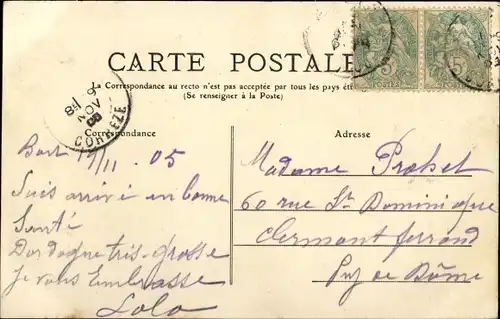 CARTE POSTALE
La Correspondance au recto n'est pas acceptée par tous les pays
(Se renseigner à la Poste)
Correspondance
Adresse
NOV
CORRÈZE
5
5
Bort 19/11 . 05
Suis arrivé en bonne
Santé
Dordogne très-grosse
Je vous Embrasse
Lolo
Madame
60 rue St Dominique
Clermont ferrand
Puy de Dôme